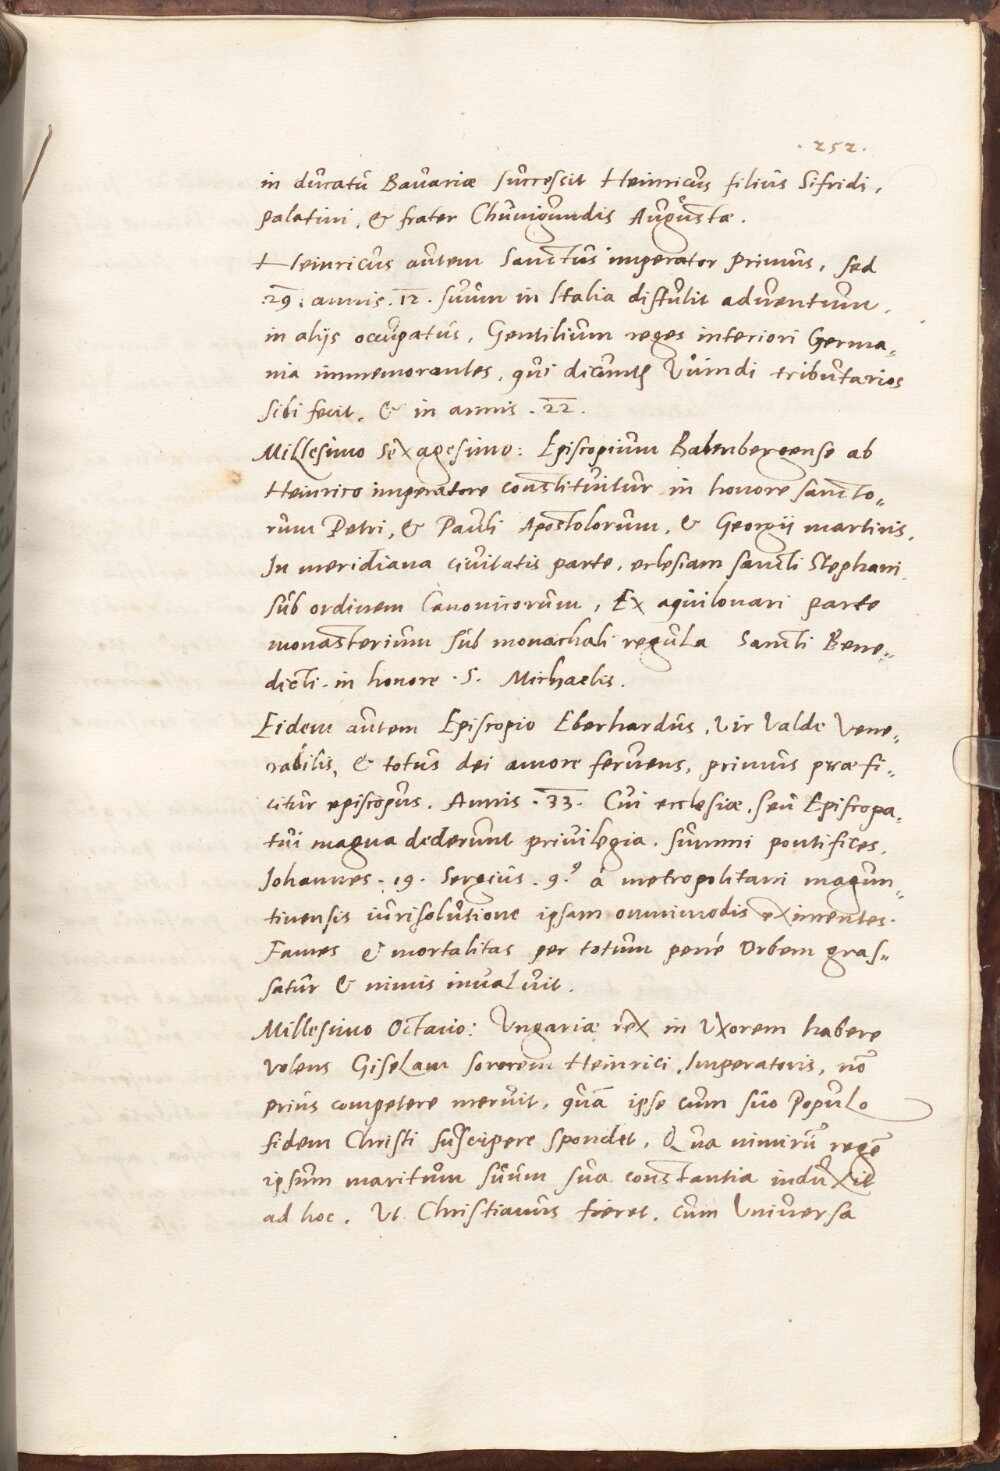 . 252 .
in ducatu Bavariæ successit Heinricus filius Sifridi,
palatini, & frater Chunigundis Augustæ.
Heinricus autem Sanctus imperator Primus, sed
29: annis. 12. suum in Italia distulit adventum,
in alijs occupatus, Gentilium reges interiori Germa„
nia immemorantes, qui dicuntur Vuindi tributarios
sibi fecit, & in annis .22.
Millesimo Sexagesimo: Episcopium Babenbergense ab
Heinrico imperatore constituitur in honore sancto„
rum Petri, & Pauli Apostolorum, & Georgij martiris.
In meridiana civitatis parte, eclesiam sancti Stephani
sub ordinem Canonicorum, Ex aquilonari parte
monasterium sub monachali regula Sancti Bene„
dicti in honore .S. Michaelis.
Eidem autem Episcopio Eberhardus, Vir Valde Vene„
rabilis, & totus dei amore fervens, primus præfi„
citur episcopus. Annis .33. Cui ecclesiæ, seu Episcopa„
tui magna dederunt privilegia. summi pontifices,
Johannes .19. Sergius .9.⁹ à metropolitani magun„
tinensis iurisolutione ipsam omnimodis eximentes.
Fames & mortalitas per totum penè Orbem gras„
satur & nimis invaluit.
Millesimo Octavo: Ungariæ rex in Uxorem habere
volens Giselam sororem Heinrici Imperatoris, nō
prius competere meruit, quā ipse cum suo Populo
fidem Christi suscipere spondet. Qua nimirū regē
ipsum maritum suum sua constantia induxit
ad hoc. Ut Christianus fieret, cum Universa